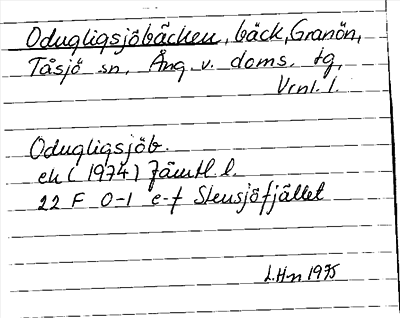 Odugligsjöbäcken, bäck, Granön,
Tåsjö sn, Ång. v. doms. tg,
Vrnl. l.
Odugligsjöb.
ek (1974) Jämtl l.
22 F 0-1 e-f Stensjöfjället
L.Hn 1975